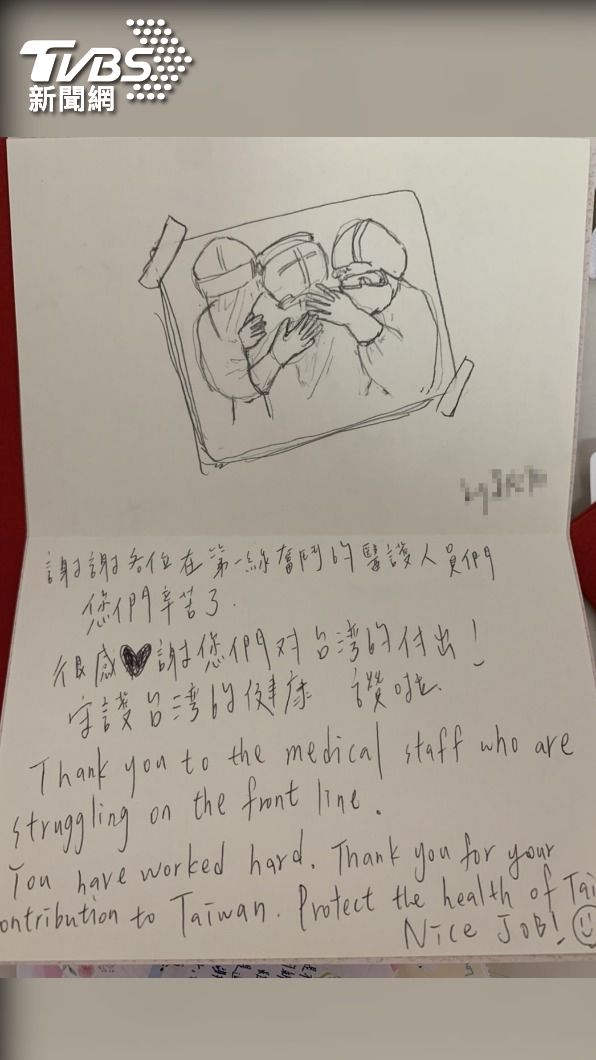 TVBS
新聞網
謝謝各位在第一線奮鬥的醫護人員們
您們辛苦了.
很感♥謝您們对台湾的付出!
守護台湾的健康 讚啦.
Thank you to the medical staff who are
struggling on the front line.
You have worked hard. Thank you for your
ontribution to Taiwan. Protect the health of Tai
NICE JOB!